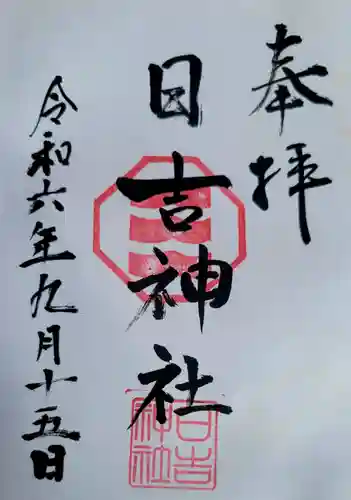 奉拝
日吉神社
令和六年九月十五日
日吉神社